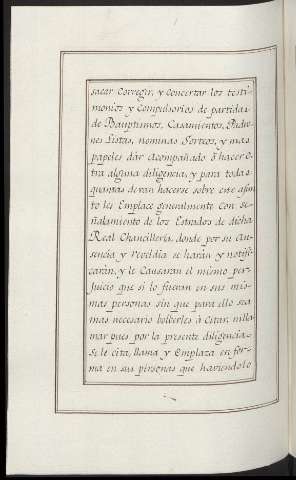 sacar Corregir, y concertar los testi-
monios y Compulsorios de partidas
de Bauptismos, Casamientos, Padro-
nes Listas, nominas Sorteos, y mas
papeles dár acompañado ó hacer o-
tra alguna diligencia, y para todas
quantas devan hacerse sobre este asun-
to les Emplace generalmente con se-
ñalamiento de los Estrados de dicha
Real Chancillería, donde por su au-
sencia y reveldia se harán y notifi-
carán, y le Causarán el mismo per-
juicio que si lo fueran en sus mis-
mas personas sin que para ello sea
mas necesario bolberles á Citar, ni lla-
mar pues por la presente diligencia
Se le cita, llama y Emplaza en for-
ma en sus personas que haviendolo